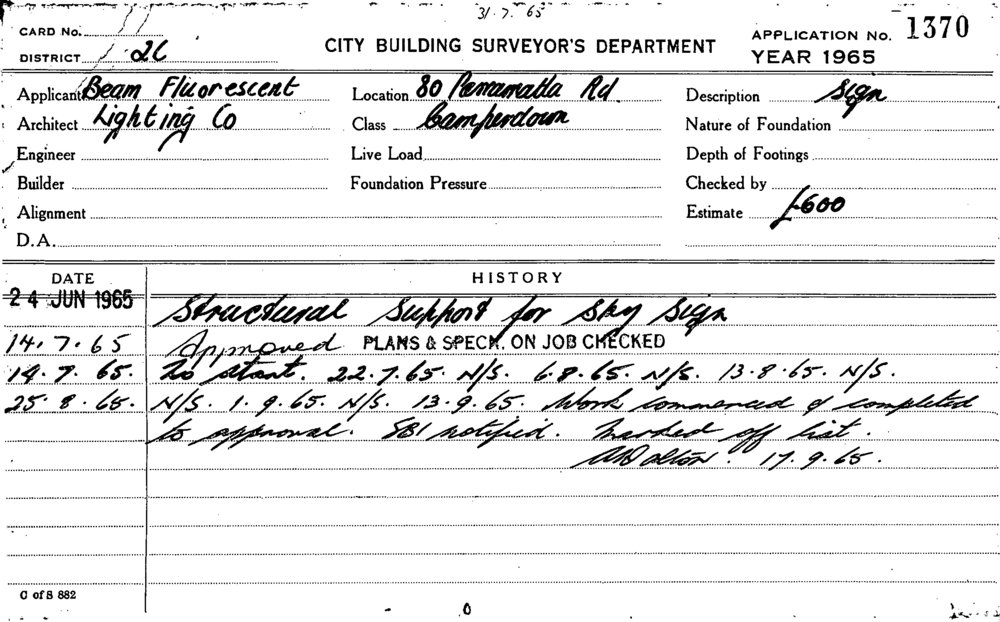 31.7.65
CARD No. 11
DISTRICT 2C
CITY BUILDING SURVEYOR'S DEPARTMENT
APPLICATION No. 1370
YEAR 1965
Applicant Beam Fluorescent
Location 80 Parramatta Rd
Description Sign
Architect Lighting Co
Class Camperdown
Nature of Foundation
Engineer
Live Load
Depth of Footings
Builder
Foundation Pressure
Checked by
Alignment
Estimate £600
D.A.
DATE HISTORY
24 JUN 1965 Structural Support for Sky Sign
14.7.65 Approved PLANS & SPECN. ON JOB CHECKED
14.7.65. To start. 22.7.65. N/S. 6.8.65. N/S. 13.8.65. N/S.
25.8.65. N/S. 1.9.65. N/S. 13.9.65. Work commenced & completed
to approval. SBI notified. Marked off list.
17.9.65.
C of S 882